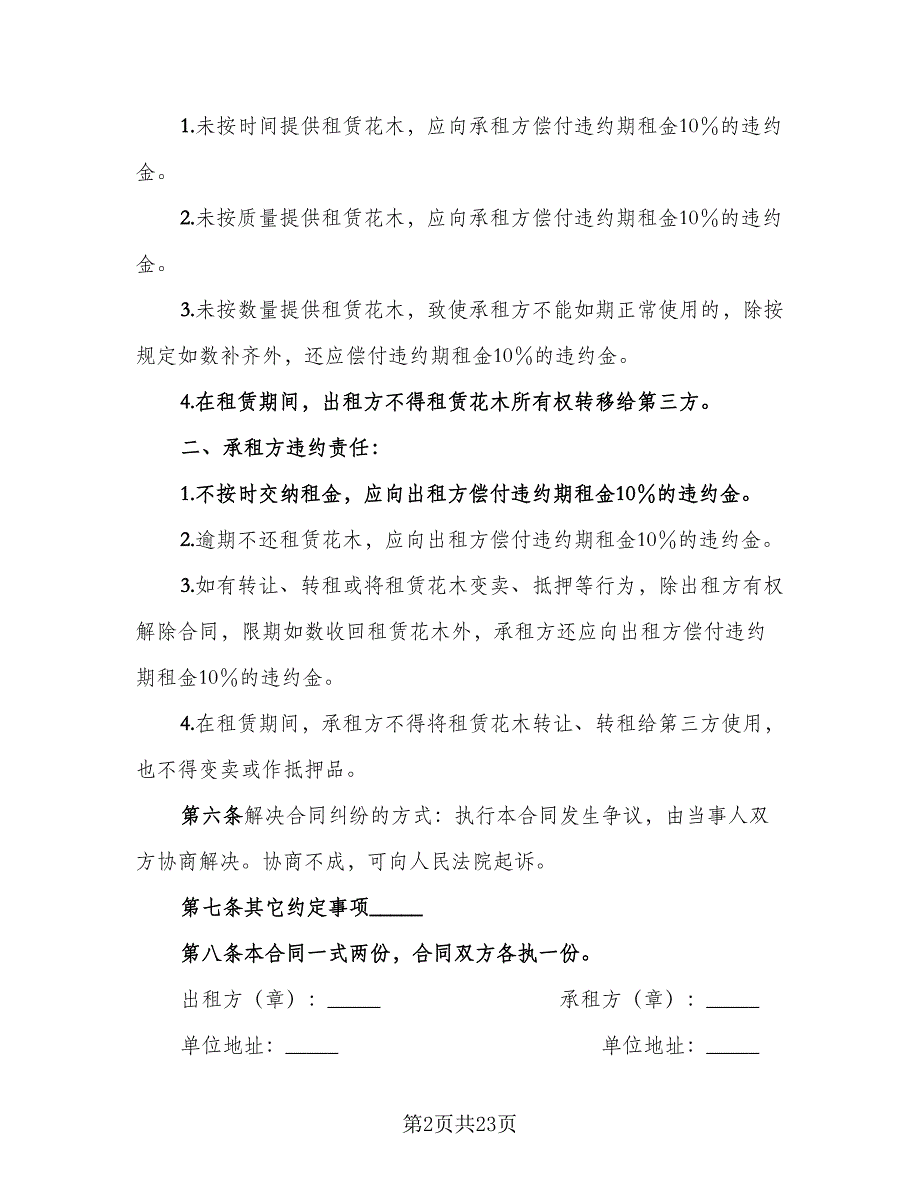 1.未按时间提供租赁花木，应向承租方偿付违约期租金10%的违约
金。
2.未按质量提供租赁花木，应向承租方偿付违约期租金10%的违约
金。
3.未按数量提供租赁花木，致使承租方不能如期正常使用的，除按
规定如数补齐外，还应偿付违约期租金10%的违约金。
4.在租赁期间，出租方不得租赁花木所有权转移给第三方。
二、承租方违约责任：
1.不按时交纳租金，应向出租方偿付违约期租金10%的违约金。
2.逾期不还租赁花木，应向出租方偿付违约期租金10%的违约金。
3.如有转让、转租或将租赁花木变卖、抵押等行为，除出租方有权
解除合同，限期如数收回租赁花木外，承租方还应向出租方偿付违约
期租金10%的违约金。
4.在租赁期间，承租方不得将租赁花木转让、转租给第三方使用，
也不得变卖或作抵押品。
第六条解决合同纠纷的方式：执行本合同发生争议，由当事人双
方协商解决。协商不成，可向人民法院起诉。
第七条其它约定事项_____
第八条本合同一式两份，合同双方各执一份。
出租方（章）：_____ 承租方（章）：_____
单位地址：_____ 单位地址：_____
第2页共23页